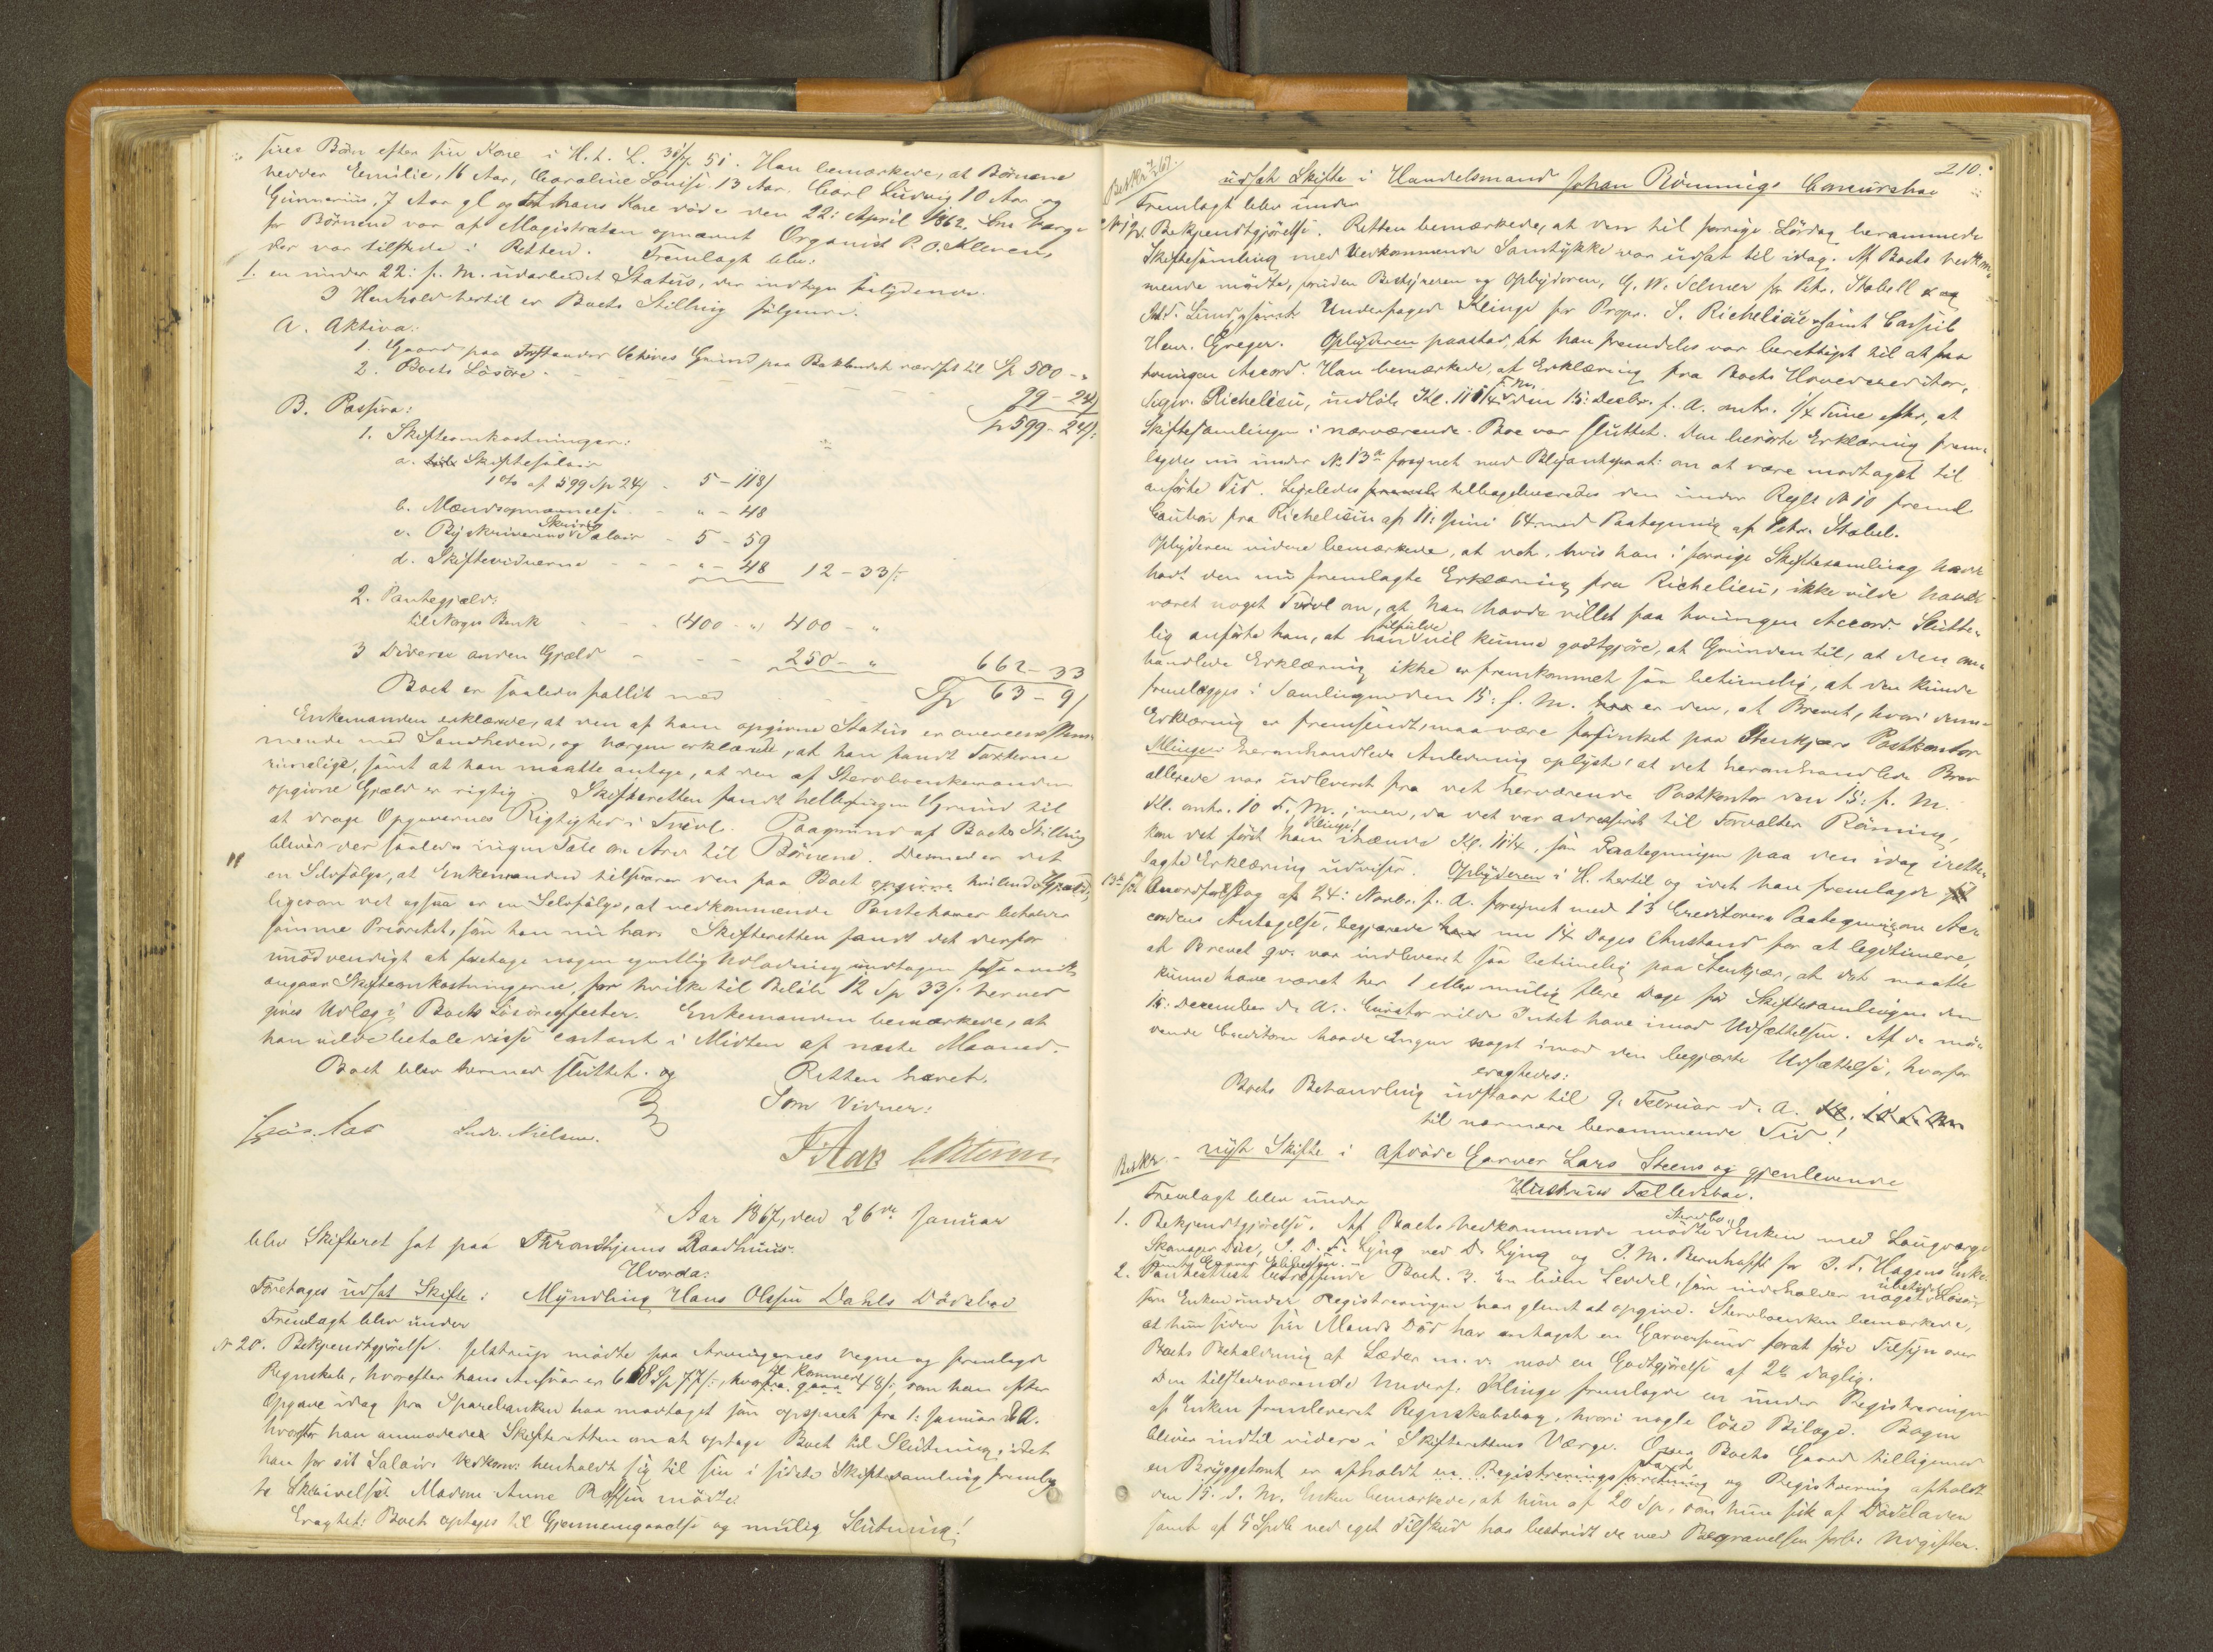 sine Børn efter sin Kone i H. t. L. 31/7 51. Han bemærkede, at Børnene
hedder Emilie, 16 Aar, Caroline Lovise 13 Aar, Carl Ludvig 10 Aar og
Gunnerius, 7 Aar gl og at hans Kone døde den 22: April 1862. Som Værge
for Børnene var af Magistraten opnævnt Organist P. O. Kleven,
der var tilstede i Retten. Fremlagt blev:
1. en under 22: f. M. udarbeidet Status, der indtages saalydende.
I Henhold hertil er Boets Stilling følgende.
A. Aktiva:
1. Gaard paa Forstander Schives Grund paa Baklandet værdsat til Sp 500 - "
2. Boets Løsøre - 99 - 24/
Sp 599 - 24/:
B. Passiva:
1. Skifteomkostninger:
a. Skiftesalair
1 % af 599 Sp 24/ - 5 - 118/
b. Mændsopnævnelse - " - 48
c. Byskriverens Skriver Salair - 5 - 59
d. Skiftevidnerne - " - 48 12 - 33/:
2. Pantegjæld:
til Norges Bank - (400 - ") 400 - "
3 Diverse anden Gjæld - 250 - " 662 - 33
Boet er saaledes fallit med Sp 63 - 9/
Enkemanden erklærede, at den af ham opgivne Status er overensstem-
mende med Sandheden, og Værgen erklærede, at han fandt Taxterne
rimelige, samt at han maatte antage, at den af Stervboenkemanden
opgivne Gjæld er rigtig. Skifteretten fandt heller ingen Grund til
at drage Opgavernes Rigtighed i Tvivl. Paagrund af Boets Stilling
bliver der saaledes ingen Tale om Arv til Børnene. Dermed er det
en Selvfølge, at Enkemanden tilsvarer den paa Boet hvilende Gjæld,
ligesom det ogsaa er en Selvfølge, at vedkommende Panthaver beholder
samme Prioritet, som han nu har. Skifteretten fandt det derfor
unødvendigt at foretage nogen egentlig Udlodning undtagen forsaavidt
angaar Skifteomkostningerne, for hvilke til Beløb 12 Sp 33/: herved
gives Udlæg i Boets Løsøreeffecter. Enkemanden bemærkede, at
han vilde betale disse contant i Midten af næste Maaned.
Boet blev hermed sluttet. og Retten hævet.
Som Vidner:
Ludv. Nielsen.
Aar 1867, den 26de Januar
blev Skifteret sat paa Throndhjems Raadhuus.
Hvorda:
Foretages udsat Skifte i Myndling Hans Olsen Dahls Dødsboe
Fremlagt blev under
N 20. Bekjendtgjørelse. Jelstrup mødte paa Arvingernes Vegne og fremlagde
Regnskab, hvorefter hans Ansvar er 608 Sp 77/:, hvortil kommer 48/:, som han efter
Opgave idag fra Sparebanken har modtaget som opsparet fra 1: Januar d. A.
hvorfor han anmodede Skifteretten om at optage Boet til Slutning, idet
han for sit Salairs Vedkom: henholdt sig til sin i sidste Skiftesamling fremlag
te Skrivelse. Madme Anne Olsen mødte
Eragtet: Boet optages til Gjennemgaaelse og mulig Slutning!
210.
Beskr.
udsat Skifte i Handelsmand Johan Rönnings Concursboe
Fremlagt blev under
N 12. Bekjendtgjørelse. Retten bemærkede, at den til forrige Lördag berammede
Skiftesamling med Vedkommende Samtykke var udsat til idag. Af Boets Vedkom-
mende mødte, foruden Bestyreren og Opbyderen, G. W. Selmer for Petr. Stabell
Lund, Underfoged Klinge for Propr. S. Richelieu samt
Henr. Greger. Opbyderen paastod, at han fremdeles var berettiget til at faa
tvungen Accord. Han bemærkede, at Erklæring fra Boets Hovedcreditor,
Richelieu, indløb Kl. 11 1/4 F.M. den 15: Decbr. f. A. omtr. 1/4 Time efter, at
Skiftesamlingen i nærværende Boe var sluttet. Den berørte Erklæring frem-
lagdes nu under N. 13a forsynet med Blyantspaat: om at være modtaget til
anførte Tid. Ligeledes tilbageleveredes den under Regst N 10 freml
Caution fra Richelieu af 11: Juni 64 med Paategning af Petr. Stabel.
Opbyderen videre bemærkede, at det, hvis han i forrige Skiftesamling havde
havt den nu fremlagte Erklæring fra Richelieu, ikke vilde havde
været noget Tvivl om, at han havde villet faa tvungen Accord. Slutte-
lig anførte han, at han tilfulde vil kunne godtgjøre, at Grunden til, at den om-
handlede Erklæring ikke er fremkommet saa betimelig, at den kunde
fremlægges i Samlingen den 15: f. M. er den, at Brevet, hvori denne
Erklæring er fremsendt, maa være forsinket paa Stenkjærs Postkontor
Klinge i heromhandlede Anledning oplyste, at det heromhandlede Brev
allerede var indleveret fra det herværende Postkontor den 15: f. M.
Kl. omtr. 10 F. M.; men, da det var adresseret til Forvalter Rönning,
kom det først ham Klinge ihænde Kl. 11 1/4, som Paategningen paa den idag irette-
lagte Erklæring udviser. Opbyderen i H. hertil og idet han fremlagde
13b Accordforslag af 24: Novbr. f. A. forsynet med 13 Creditorers Paategning om Ac-
cordens Antagelse, begjærede nu 14 Dages Anstand for at legitimere,
at Brevet qv. var indleveret saa betimelig paa Stenkjær, at det maatte
kunne have været her 1 eller mulig flere Dage før Skiftesamlingen den
15: December d. A. Curator vilde Intet have imod Udsættelsen. Af de mø-
dende Creditorer havde Ingen noget imod den begjærte Udsættelse, hvorfor
eragtedes:
Boets Behandling udstaar til 9. Februar d. A. Kl. 10 F. M.
til nærmere berammende Tid!
Beskr. - nyt Skifte i afdøde Garver Lars Steens og gjenlevende
Hustrues Fælledsboe.
Fremlagt blev under
1. Bekjendtgjørelse. Af Boets Vedkommende mødte Stervbo Enken med Laugværge
Skomager Due, J. D. F. Lyng ved D. Lyng og J. M. Bernhoft for J. F. Hagens Enke
2. Panteattest betræffende Boet. 3. En liden Seddel, som indeholder noget ubetydeligt Løsøre
som Enken under Registreringen har glemt at opgive. Stervboenken bemærkede,
at hun siden sin Mands Død har antaget en Garversvend forat føre Tilsyn over
Boets Beholdning af Læder m. v. mod en Godtgjørelse af 2 daglig.
Den tilstedeværende Underf. Klinge fremlagde en under Registreringen
af Enken fremleveret Regnskabsbog, hvori nogle løse Bilage. Bogen
bliver indtil videre i Skifterettens Værge. Over Boets Gaard tilligemed
en Bryggetomt er afholdt en Registreringsforretning og Registrering afholdt
den 15. d. M. Enken bemærkede, at hun af 20 Sp, som hun fik af Dødeladen
samt af 5 Spd ved eget Tilskud har bestridt de ved Begravelsen forb: Udgifter.